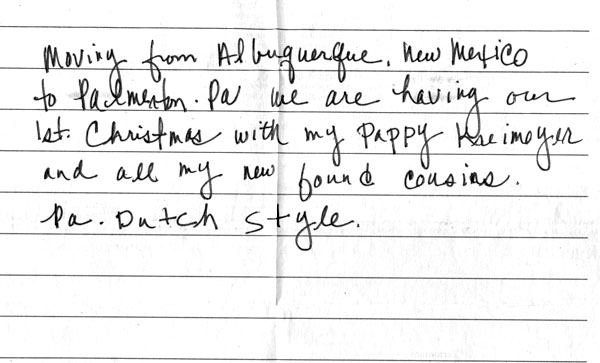 Moving from Albuquerque, New Mexico
to Palmerton. Pa we are having our
1st. Christmas with my Pappy
and all my new found cousins.
Pa. Dutch Style.